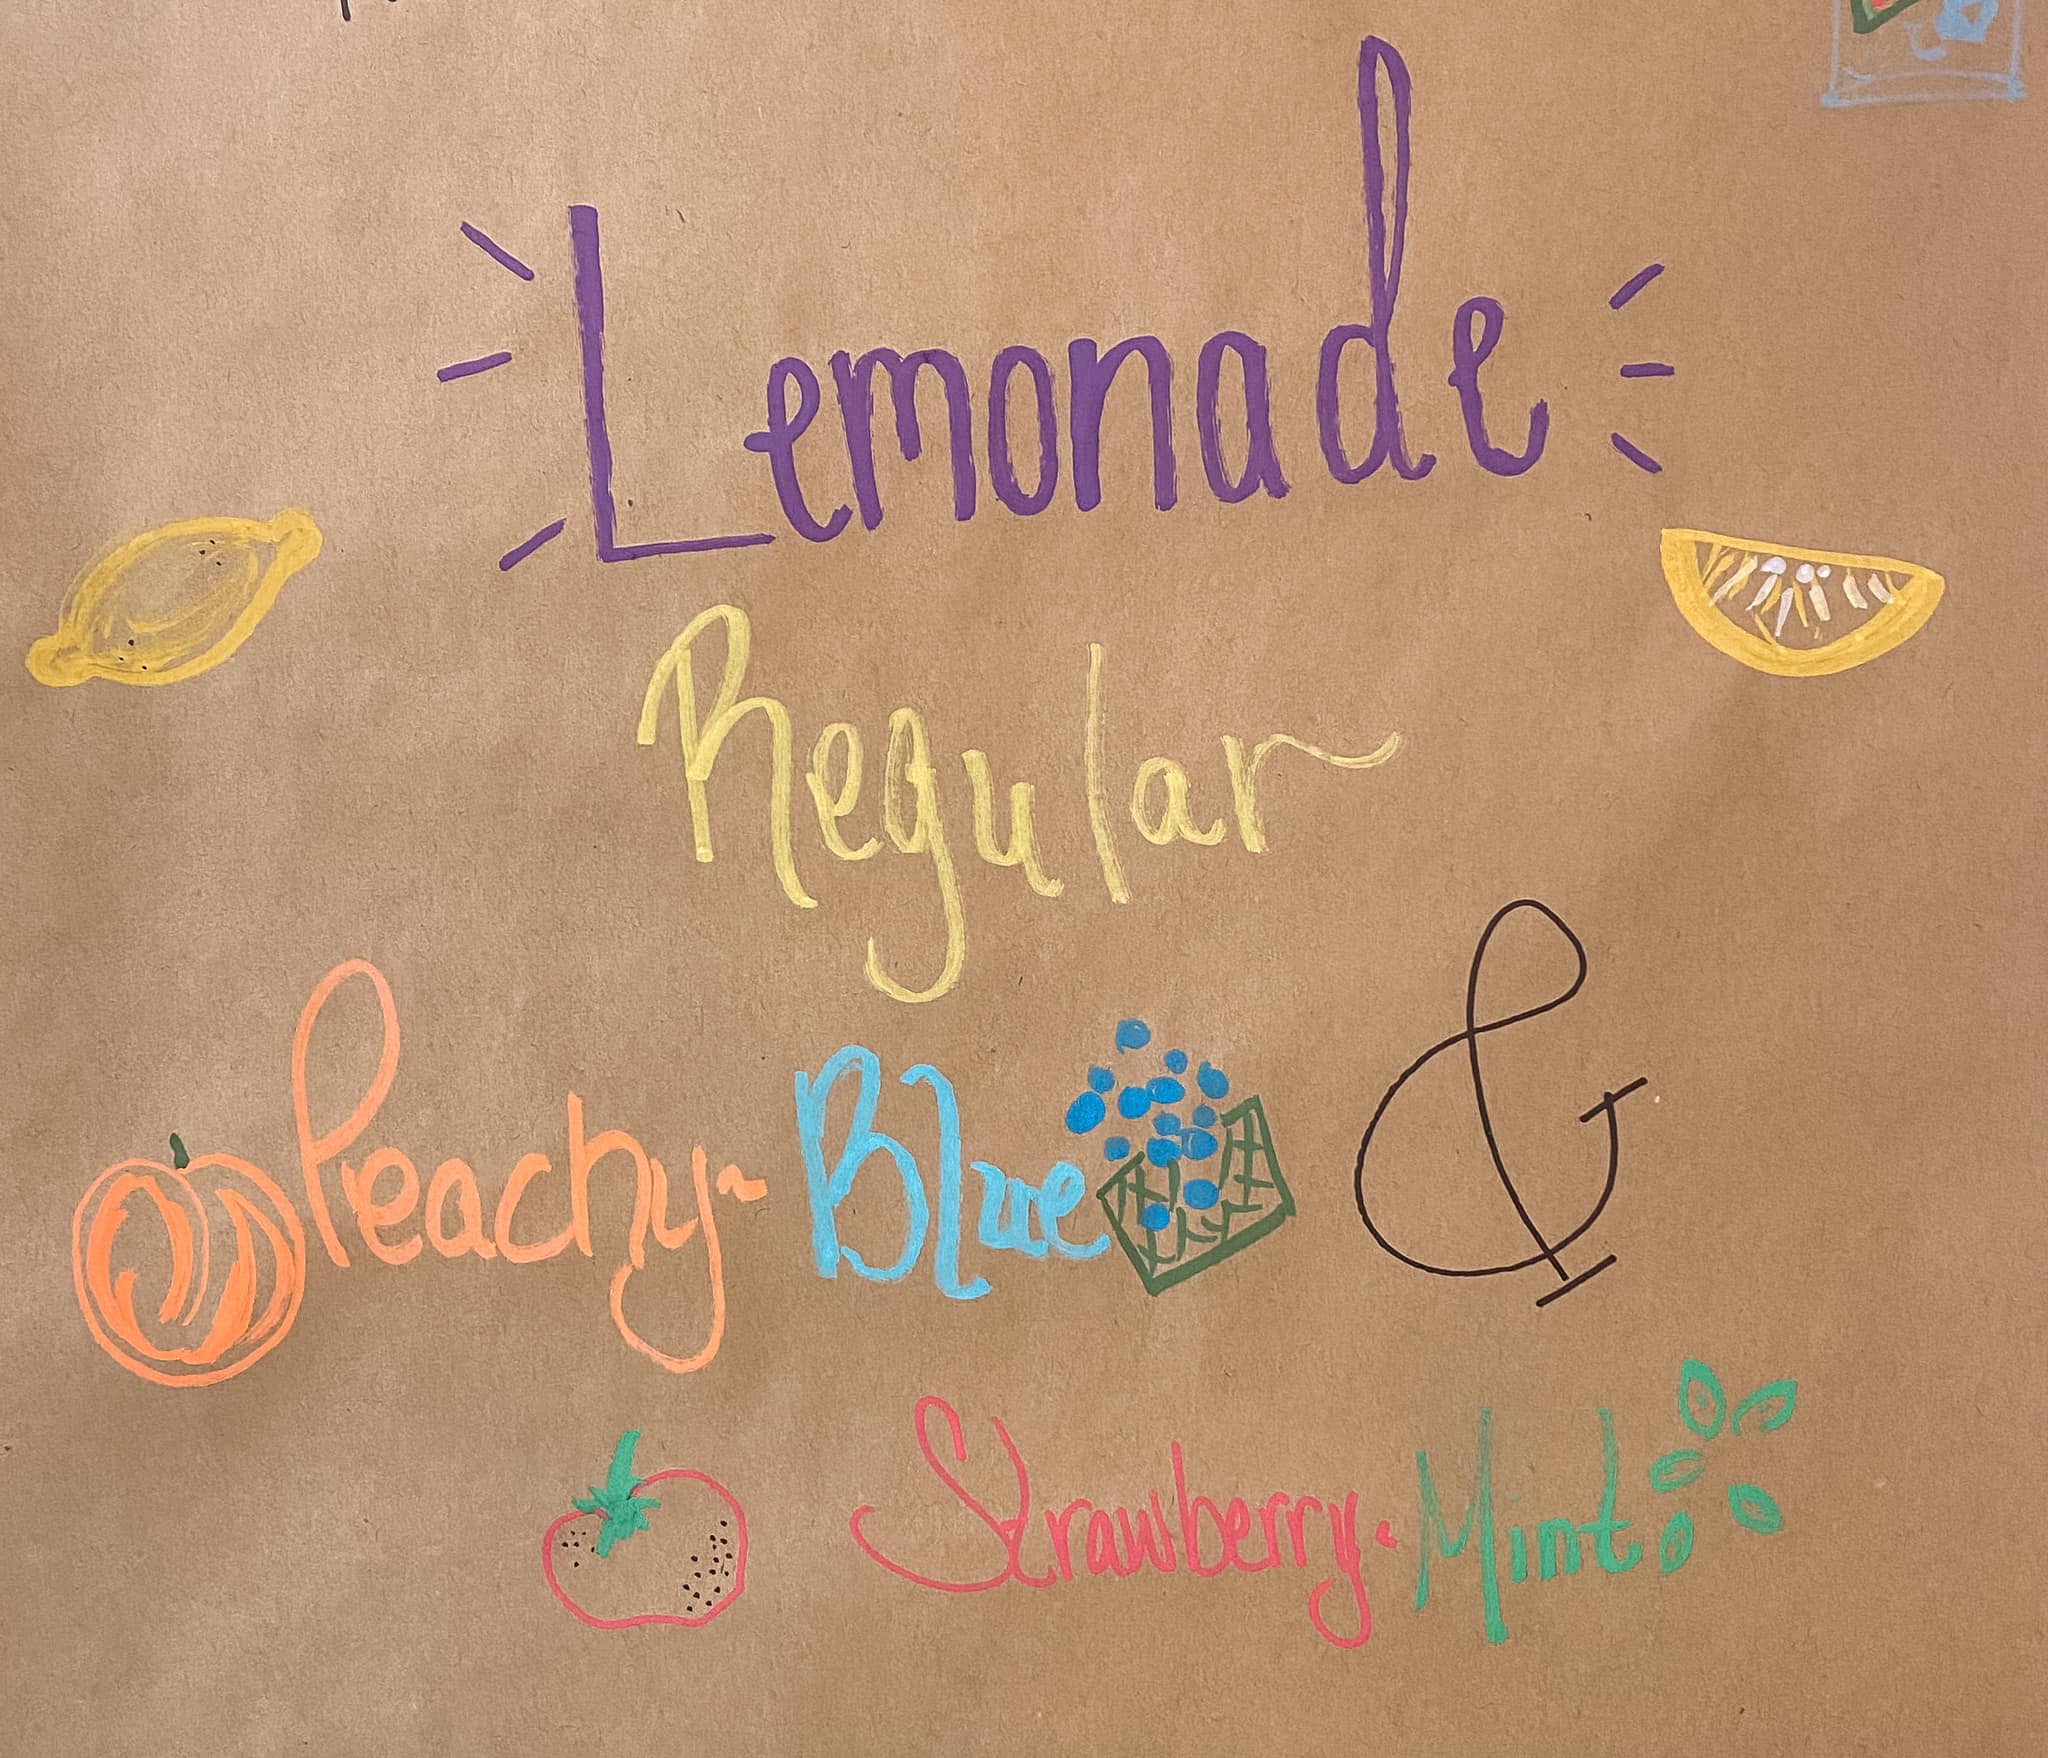 Lemonade
Regular
Peachy-Blue &
Strawberry-Mint